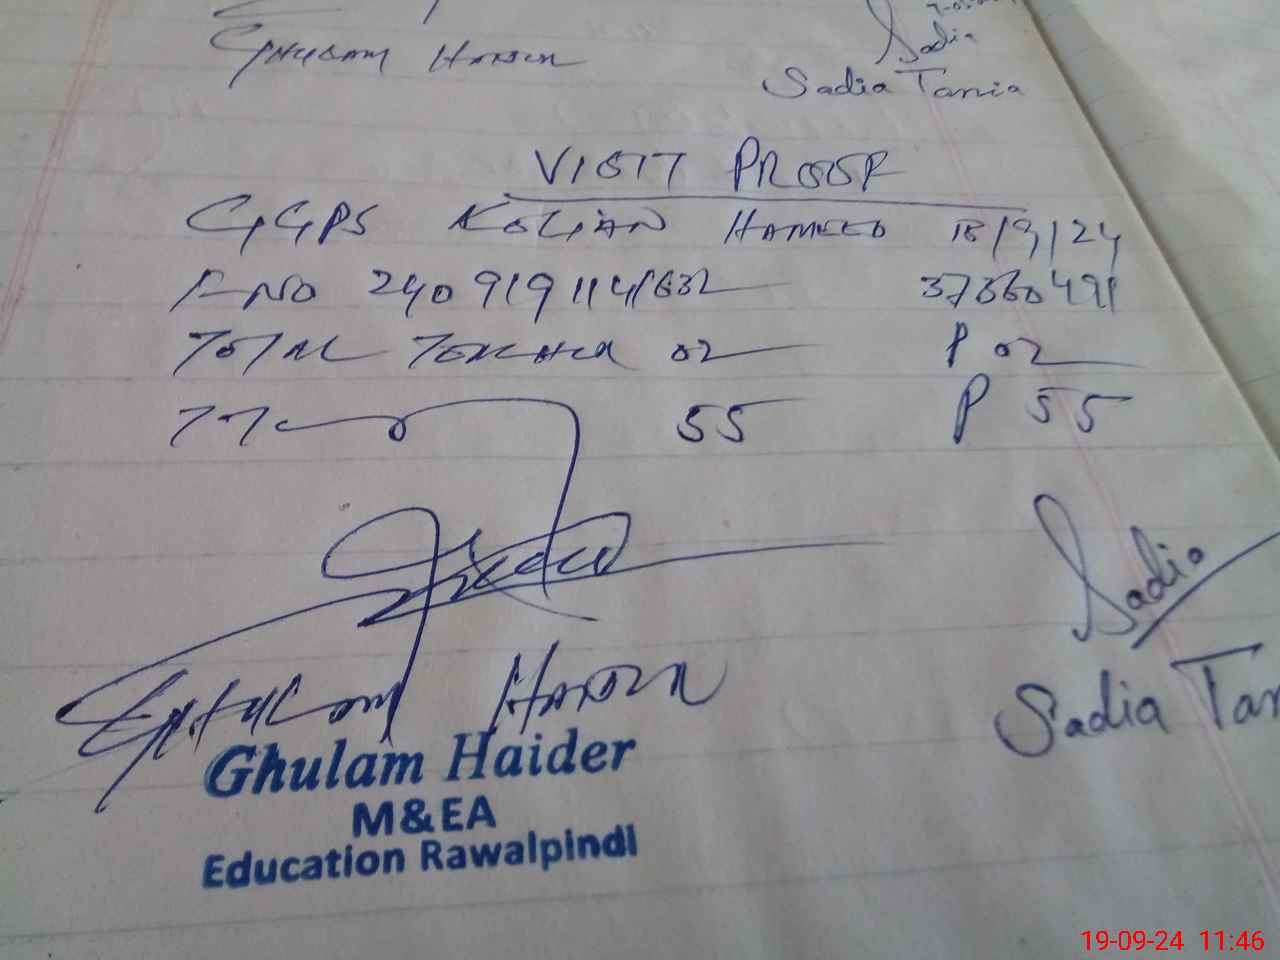 Sadia
GHULAM HAIDER
Sadia Tania
VISIT PROOF
GGPS KOLIAN HAMEED 18/9/24
F-NO 240919114632 37360491
TOTAL TEACHER 02 P 02
55 P 55
Sadia
GHULAM HAIDER
Sadia Tan
Ghulam Haider
M&EA
Education Rawalpindi
19-09-24 11:46